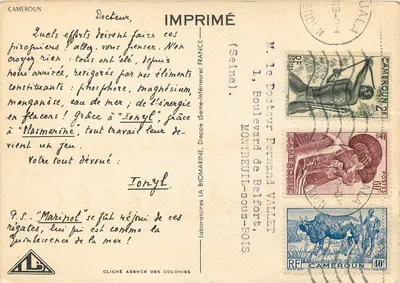 CAMEROUN
IMPRIMÉ
Docteur,
Quels efforts doivent faire ces
piroguiers ! allez-vous penser. N'en
croyez rien : tous ont été, depuis
notre arrivée, revigorés par nos éléments
constituants : phosphore, magnésium,
manganèse, eau de mer ; de l'énergie
en flacons ! Grâce à "Ionyl", grâce
à "Plasmarine", tout travail leur de-
vient un jeu.
Votre tout dévoué :
Ionyl.
P.S. "Marinol" se fût réjoui de ces
régates, lui qui est comme la
quintessence de la mer !
CLICHÉ AGENCE DES COLONIES
Laboratoires LA BIOMARINE, Dieppe (Seine-Inférieure) FRANCE
M. le Docteur Fernand VALLET
1, Boulevard de Belfort,
MONTREUIL-sous-BOIS
(Seine).
DOUALA
RF
CAMEROUN
RF
CAMEROUN
POSTES
10
RF
CAMEROUN
40c